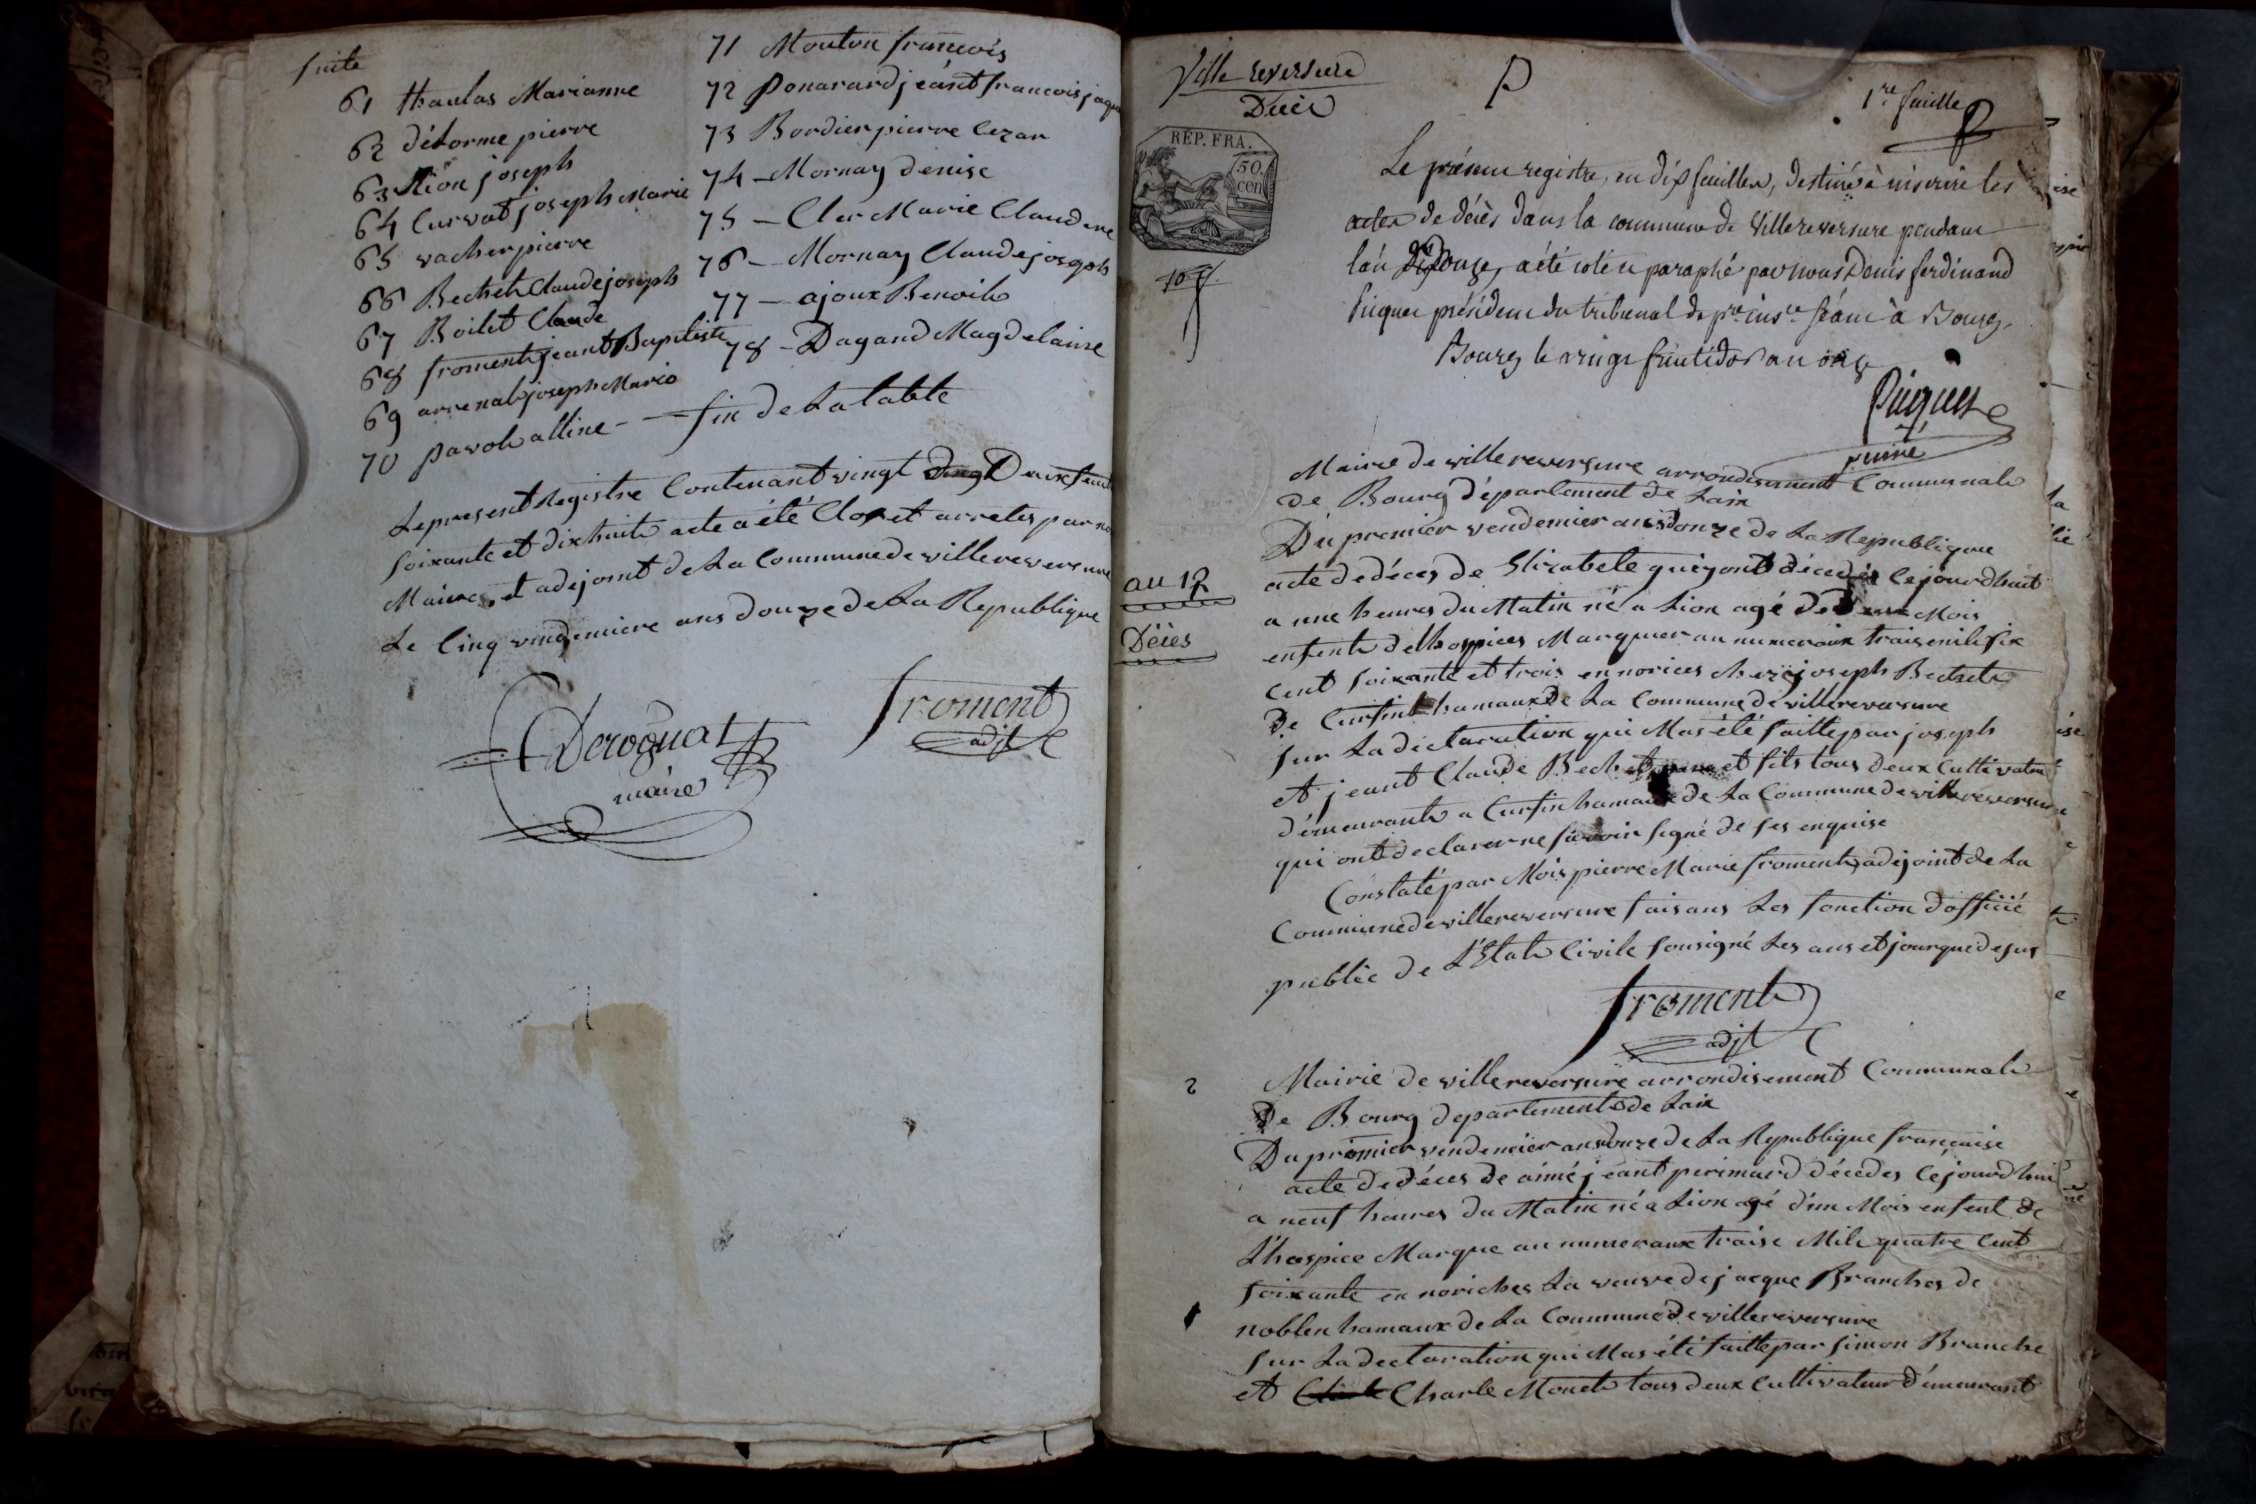 suite
61 thaulas Marianne
62 délorme pierre
63 Rion joseph
64 Curvat joseph Marie
65 vacher pierre
66 Bechet Claude joseph
67 Boilet Claude
68 froment jeant Baptiste
69 arrenal joseph Marie
70 pavol alline - fin de La table
71 Mouton francois
72 ponarard jeant francois jaque
73 Bordier pierre Cezar
74 - Mornay denise
75 - Cler Marie Claudine
76 - Mornay Claude joseph
77 - ajoux Benoit
78 - Dagand Magdelaine
Le present Registre Contenant vingt Deux feuil
soixante et dix huit acte a été Clos et arretes par no
Maire et adejoint de La Commune de villereversure
Le Cinq vendemiere ans douze de La Republique
Derognat
maire
froment
adjt
Villereversure
Décès
P
1re feuille
REP. FRA.
50.
cen
10 f.
Le présent registre, en dix feuilles, destiné à inscrire les
actes de décès dans la commune de Villereversure pendant
l'an douze, a été coté et paraphé par nous Denis ferdinand
Picquet président du tribunal de pre insce séant à Bourg.
Bourg le vingt fructidor an onze
Picquet
au 12
Décès
Mairie de villereversure arrondisement Communale
de Bourg département de Lain
Du premier vendemier ans douze de La Republique
acte de déces de Elizabete guigont décedés Cejourdhuit
a une heures du Matin né a Lion agé de Mois
enfent de lhospices Marquer au numeraux trais mile six
Cent soixante et trois en norices chez joseph Bechet
de Cursint hamaux de La Commune de villereversure
sur La declaration qui Mas été faitte par joseph
et jeant Claude Bechet et fils tous deux Cultivateu
démeurant a Cursin hamaux de La Commune de villereversure
qui ont declarer ne savoir signé de ses enquise
Constaté par Mois pierre Marie froment adejoint de La
Commune de villereversure faisans Les fonction dofficié
public de L'Etat Civile sousigné Les ans et jour que desus
froment
adjt
2
Mairie de villereversure arrondisement Communale
De Bourg departement de Lain
Du premier vendemier ans douze de La Republique francaise
acte de déces de aimé jeant perimard décedes Cejourdhui
a neuf heures du Matin né a Lion agé d'un Mois enfent de
L'hospice Marque au numeraux traise Mile quatre Cent
soixante en noriches La veuve de jacque Branches de
noblen hamaux de La Commune de villereversure
sur La declaration qui Mas été faitte par simon Branche
et Charle Monet tous deux Cultivateur démeurant